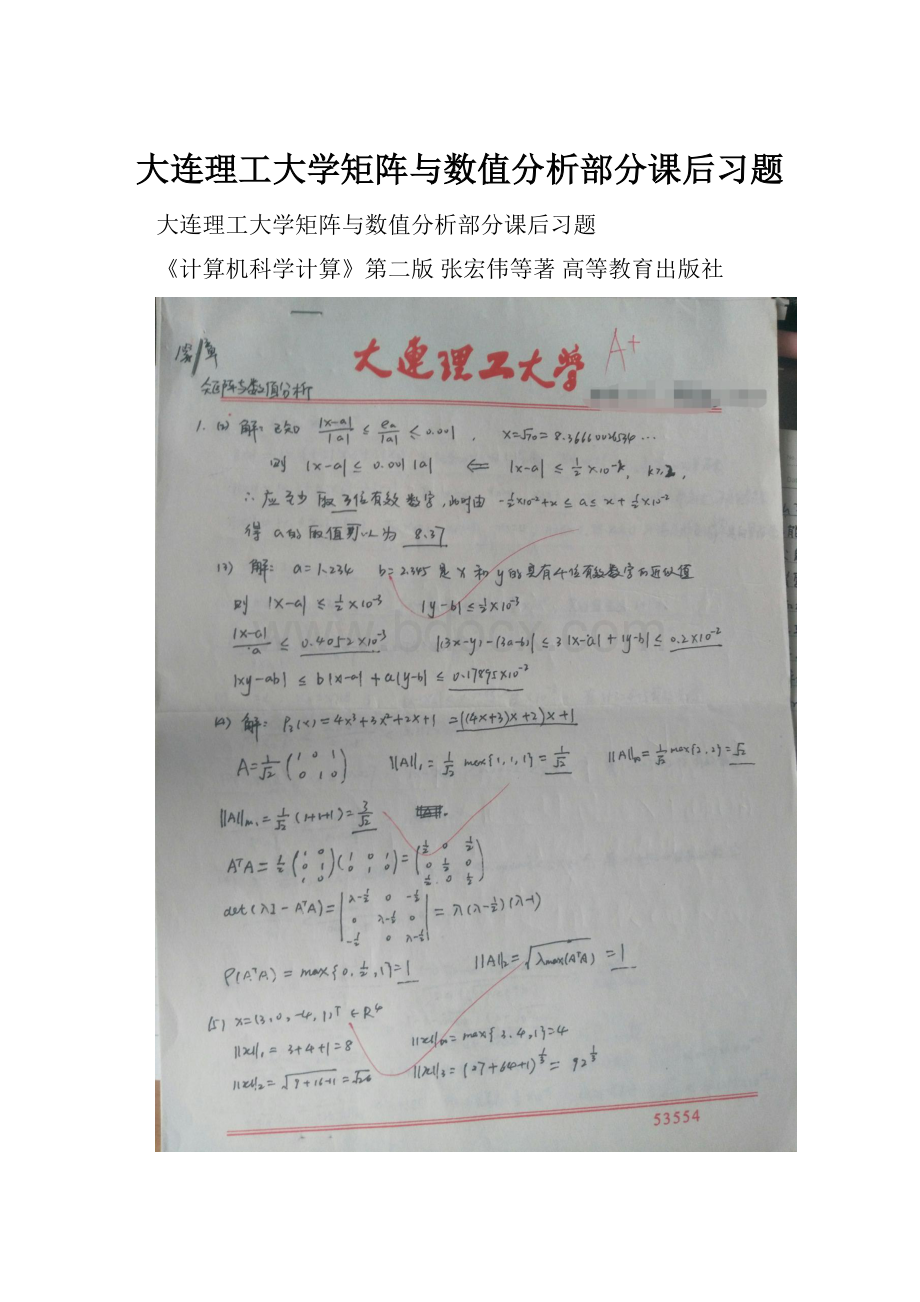 大连理工大学矩阵与数值分析部分课后习题
大连理工大学矩阵与数值分析部分课后习题
《计算机科学计算》第二版 张宏伟等著 高等教育出版社
第1章
大连理工大学
A+
矩阵与数值分析
1. (2) 解: 已知 |x-a|/|a| ≤ eₐ/|a| ≤ 0.001 , x=√70=8.36660026534…
则 |x-a| ≤ 0.001|a| ⇐ |x-a| ≤ ½×10⁻ᵏ, k≥2,
∴ 应至少取3位有效数字, 此时由 -½×10⁻²+x ≤ a ≤ x+½×10⁻²
得 a的取值可以为 8.37
(3) 解: a=1.234 b=2.345 是 x 和 y 的具有4位有效数字的近似值
则 |x-a| ≤ ½×10⁻³ |y-b| ≤ ½×10⁻³
|x-a|/a ≤ 0.4052×10⁻³ |(3x-y)-(3a-b)| ≤ 3|x-a|+|y-b| ≤ 0.2×10⁻²
|xy-ab| ≤ b|x-a|+a|y-b| ≤ 0.17895×10⁻²
(4) 解: P₂(x)=4x³+3x²+2x+1 =((4x+3)x+2)x+1
A=1/√2 (1 0 1; 0 1 0) ‖A‖₁=1/√2 max{1,1,1}=1/√2 ‖A‖∞=1/√2 max{2,2}=√2
‖A‖m₁=1/√2 (1+1+1)=3/√2
AᵀA=½(1 0; 0 1; 1 0)(1 0 1; 0 1 0)=(½ 0 ½; 0 ½ 0; ½ 0 ½)
det(λI-AᵀA)=|λ-½ 0 -½; 0 λ-½ 0; -½ 0 λ-½|=λ(λ-½)(λ-1)
ρ(AᵀA)=max{0,½,1}=1 ‖A‖₂=√λmax(AᵀA)=1
(5) x=(3,0,-4,1)ᵀ∈R⁴
‖x‖₁=3+4+1=8 ‖x‖∞=max{3,4,1}=4
‖x‖₂=√9+16+1=√26 ‖x‖₃=(27+64+1)^⅓=92^⅓
53554